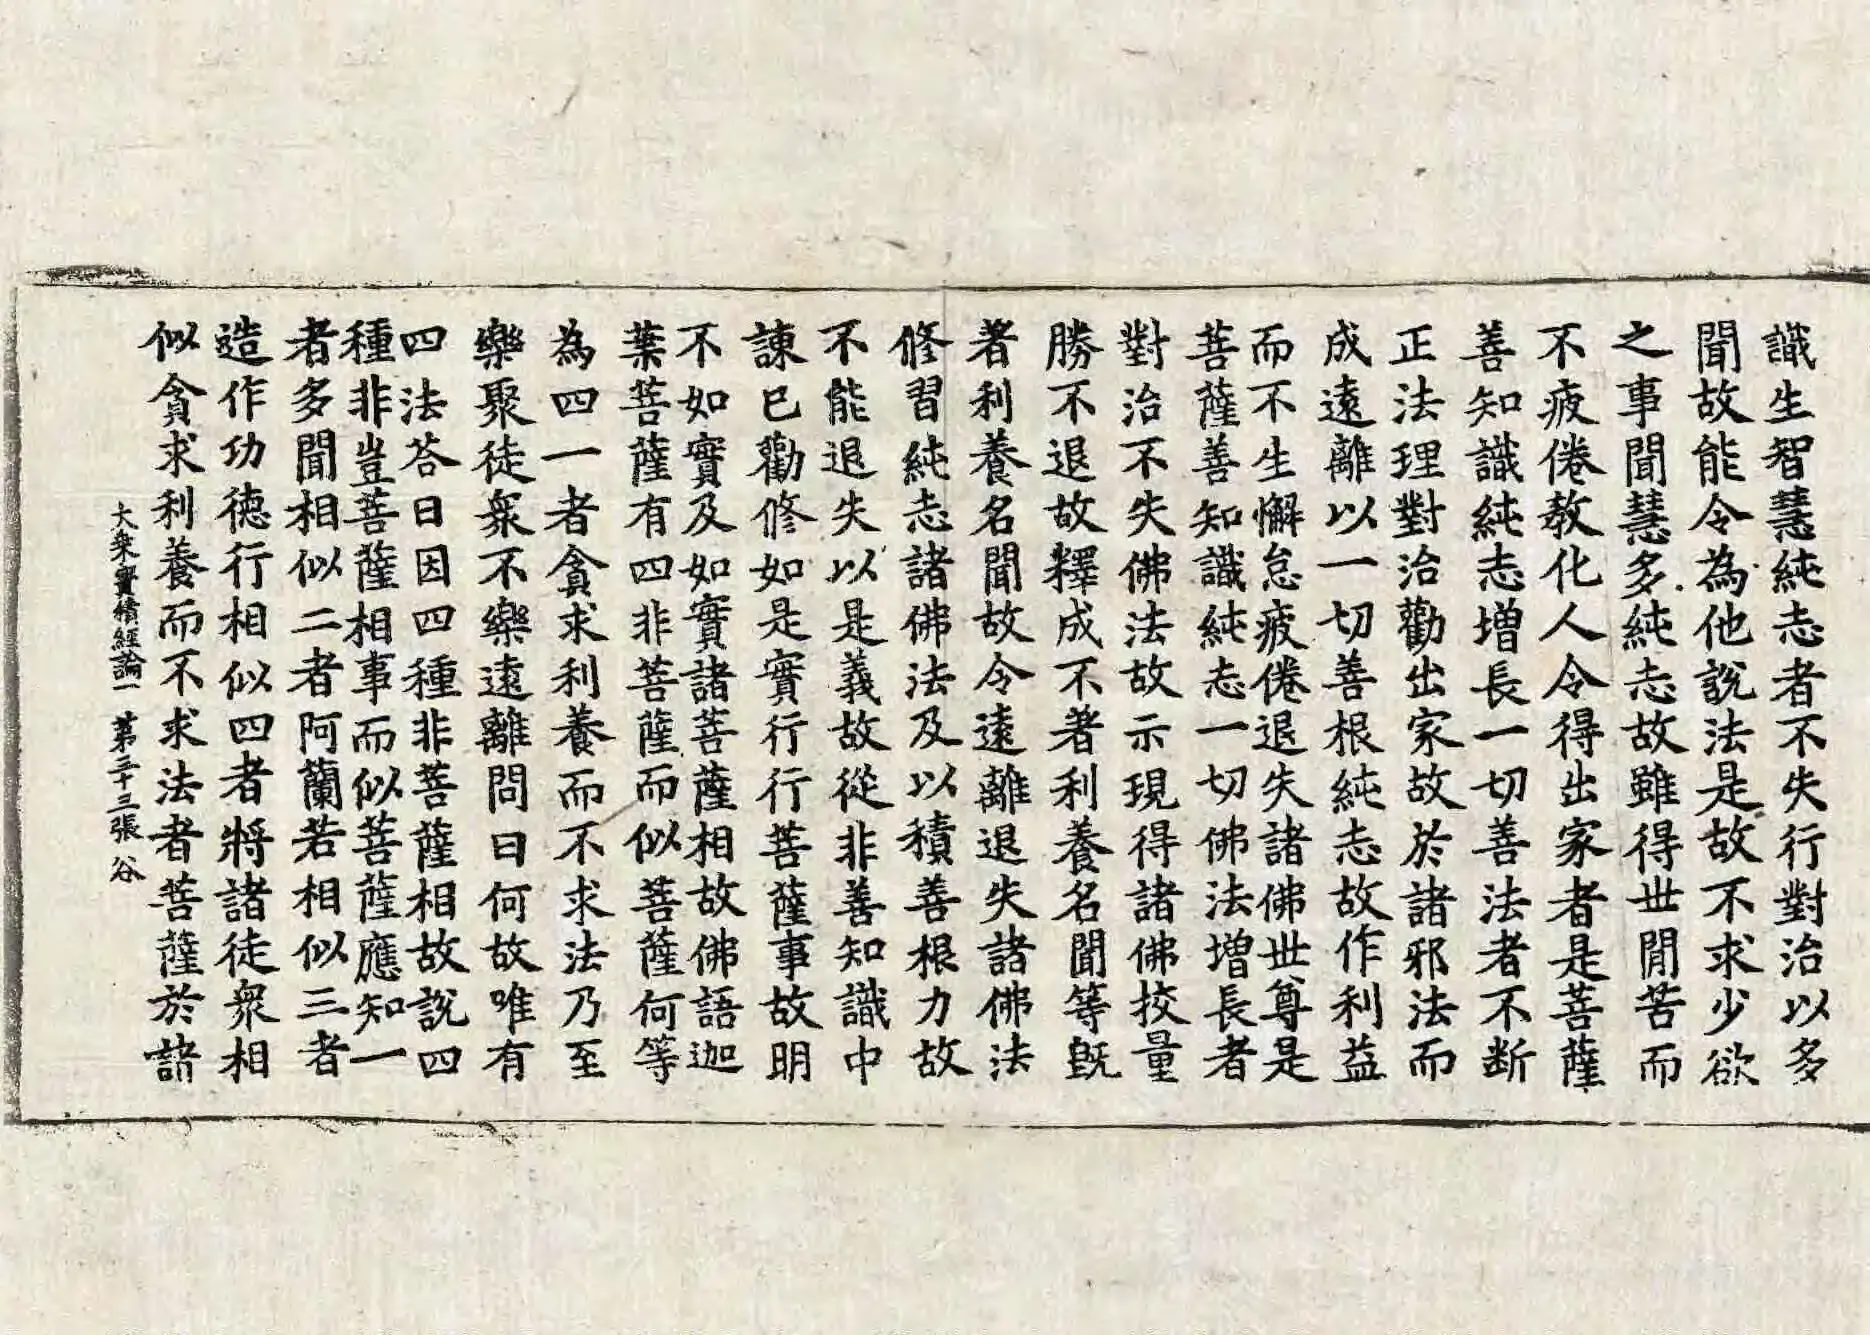 識生智慧純志者不失行對治以多
聞故能令為他說法是故不求少欲
之事聞慧多純志故雖得世間苦而
不疲倦教化人令得出家者是菩薩
善知識純志增長一切善法者不断
正法理對治勸出家故於諸邪法而
成遠離以一切善根純志故作利益
而不生懈怠疲倦退失諸佛世尊是
菩薩善知識純志一切佛法增長者
對治不失佛法故示現得諸佛挍量
勝不退故釋成不著利養名聞等既
著利養名聞故令遠離退失諸佛法
修習純志諸佛法及以積善根力故
不能退失以是義故從非善知識中
諫已勸修如是實行行菩薩事故明
不如實及如實諸菩薩相故佛語迦
葉菩薩有四非菩薩而似菩薩何等
為四一者貪求利養而不求法乃至
樂聚徒衆不樂遠離問曰何故唯有
四法荅曰因四種非菩薩相故說四
種非豈菩薩相事而似菩薩應知一
者多聞相似二者阿蘭若相似三者
造作功德行相似四者將諸徒衆相
似貪求利養而不求法者菩薩於諸
大乗寳積經論一 第三十三張 谷